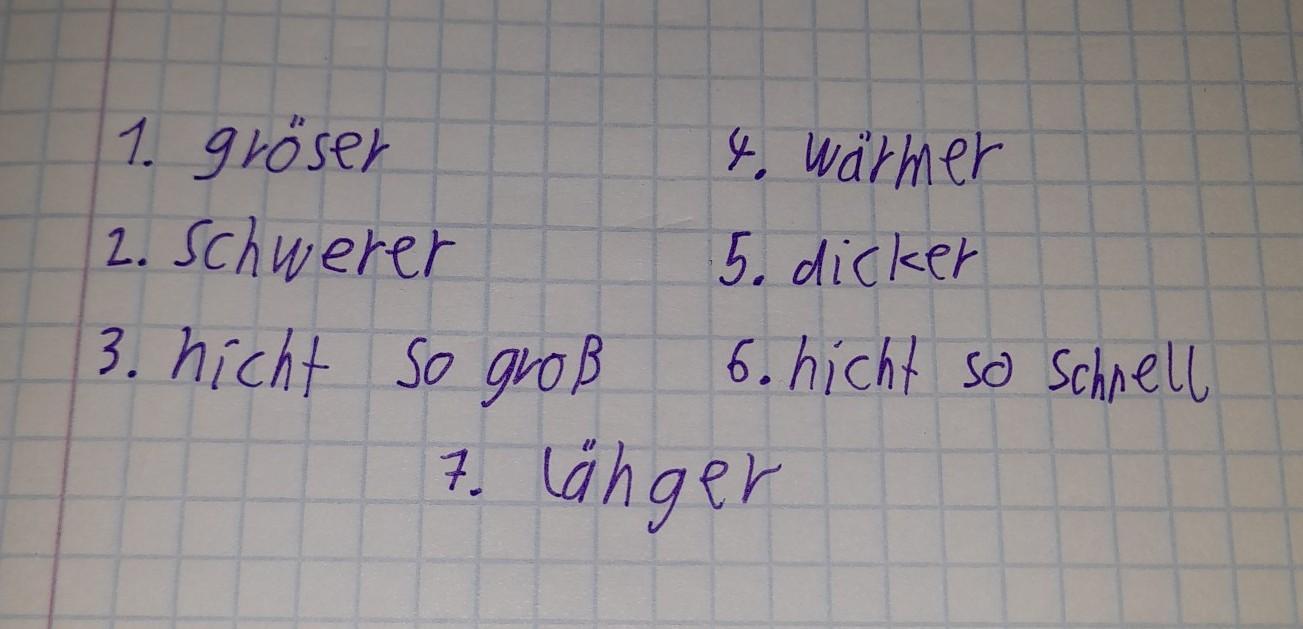 1. gröser
4. wärmer
2. schwerer
5. dicker
3. nicht so groß
6. nicht so schnell
7. länger